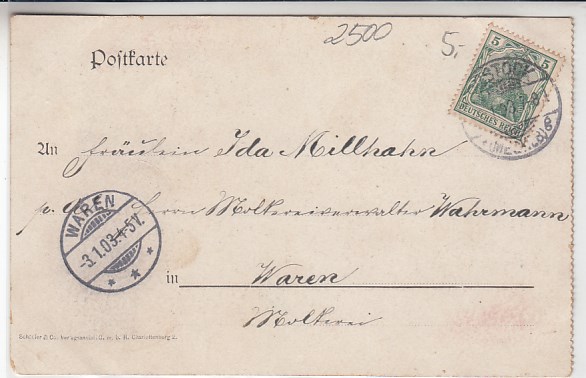 2500
5,-
Postkarte
5 5
DEUTSCHES REICH
STOCK
An Fräulein Ida Millhahn
Herrn Molkereiverwalter Wahrmann
WAREN
-3.1.03.4-5V.
in Waren
Molkerei
Charlottenburg